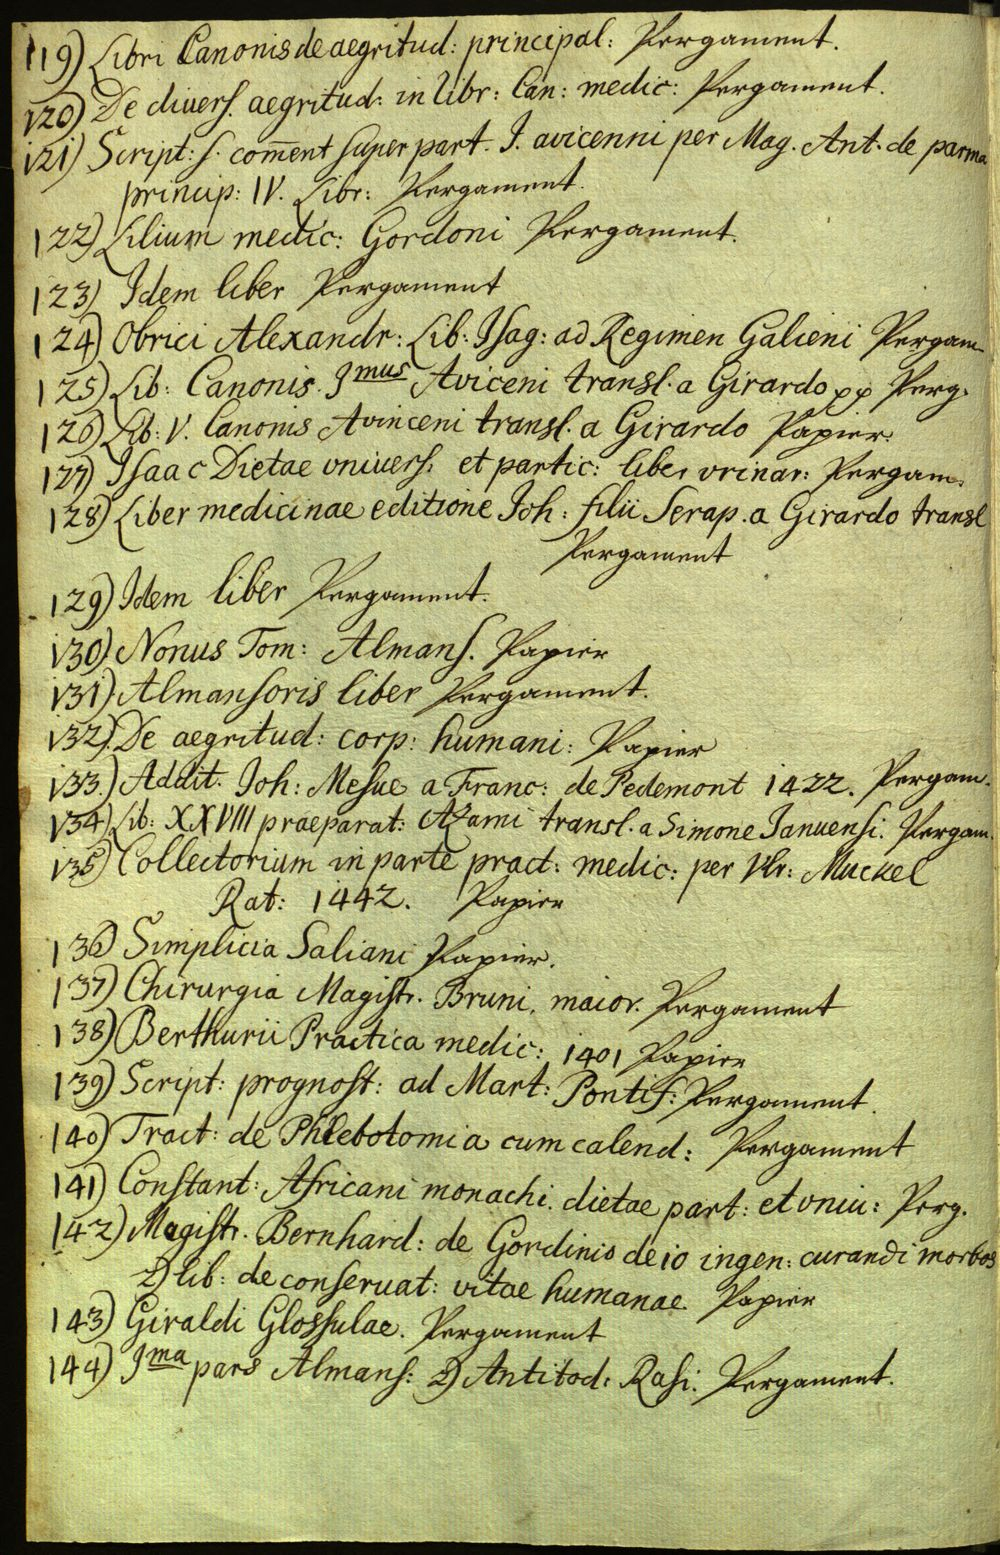 119) Libri Canonis de aegritud: principal: Pergament.
120) De diuers. aegritud: in libr: Can: medic: Pergament.
121) Script: s. com̄ent super part. I. avicenni per Mag. Ant. de parma
princip: IV. Libr: Pergament.
122) Lilium medic: Gordoni Pergament.
123) Idem liber Pergament
124) Obrici Alexandr: Lib: Isag: ad Regimen Galieni Pergam
125) Lib: Canonis. Imus Aviceni transl. a Girardo pp Perg.
126) Lib: V. Canonis Avinceni transl. a Girardo Papier.
127) Isaac Dietae vniuers. et partic: liber vrinar: Pergam.
128) Liber medicinae editione Joh: filii Serap. a Girardo transl
Pergament
129) Idem liber Pergament.
130) Nonus Tom: Almans. Papier
131) Almansoris liber Pergament.
132) De aegritud: corp: humani: Papier
133.) Addit. Joh: Mesue a Franc: de Pedemont 1422. Pergam.
134) Lib: XXVIII praeparat: Azami transl. a Simone Januensi. Pergam.
135) Collectorium in parte pract: medic: per Vlr: Muckel
Rat: 1442. Papier
136) Simplicia Saliani Papier.
137) Chirurgia Magistr. Bruni, maior. Pergament
138) Berthurii Practica medic: 1401 Papier
139) Script: prognost: ad Mart: Pontif: Pergament.
140) Tract: de Phlebotomia cum calend: Pergament
141) Constant: Africani monachi. dietae part: et vniu: Perg.
142) Magistr. Bernhard: de Gordinio de 10 ingen: curandi morbos
2) lib: de conseruat: vitae humanae. Papier
143) Giraldi Glossulae. Pergament
144) Ima pars Almans: 2) Antitod: Rasi. Pergament.